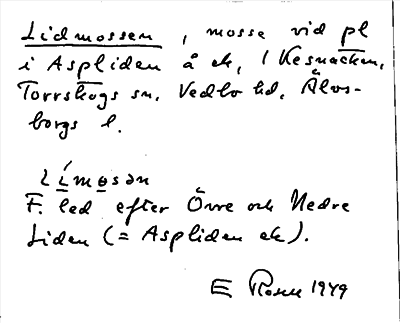 Lidmossen, mosse vid pl
i Aspliden å ek, i Kesnacken,
Torrskogs sn. Vedbo hd. Älvs-
borgs l.
Límosən
F. led efter Övre och Nedre
Liden (= Aspliden ek).
E Rosell 1949